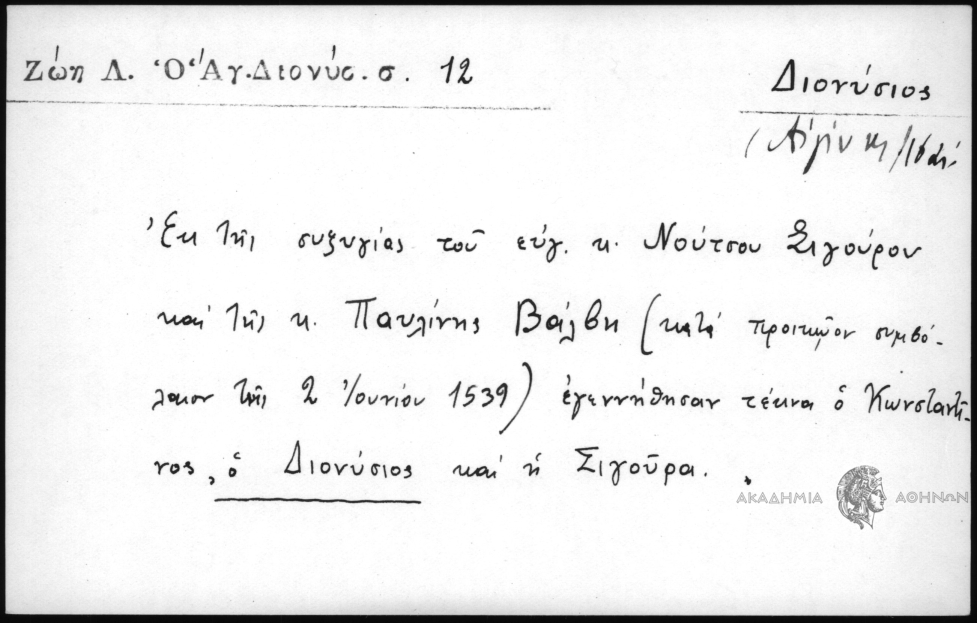 Ζώη Λ. Ὁ Ἅγ. Διονύσ. σ. 12
Διονύσιος
(Αἰγίνης
Ἐκ τῆς συζυγίας τοῦ εὐγ. κ. Νούτσου Σιγούρου
καὶ τῆς κ. Παυλίνης Βάλβη (κατὰ προικῷον συμβό-
λαιον τῆς 2 Ἰουνίου 1539) ἐγεννήθησαν τέκνα ὁ Κωνσταντῖ-
νος, ὁ Διονύσιος καὶ ἡ Σιγούρα.
ΑΚΑΔΗΜΙΑ ΑΘΗΝΩΝ